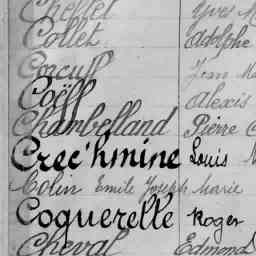 Cheftel Yves M
Collet Adolphe
Coëff Alexis
Chambelland Pierre C
Crec'hmine Louis
Colin Emile Joseph Marie
Coquerelle Roger
Cheval Edmond